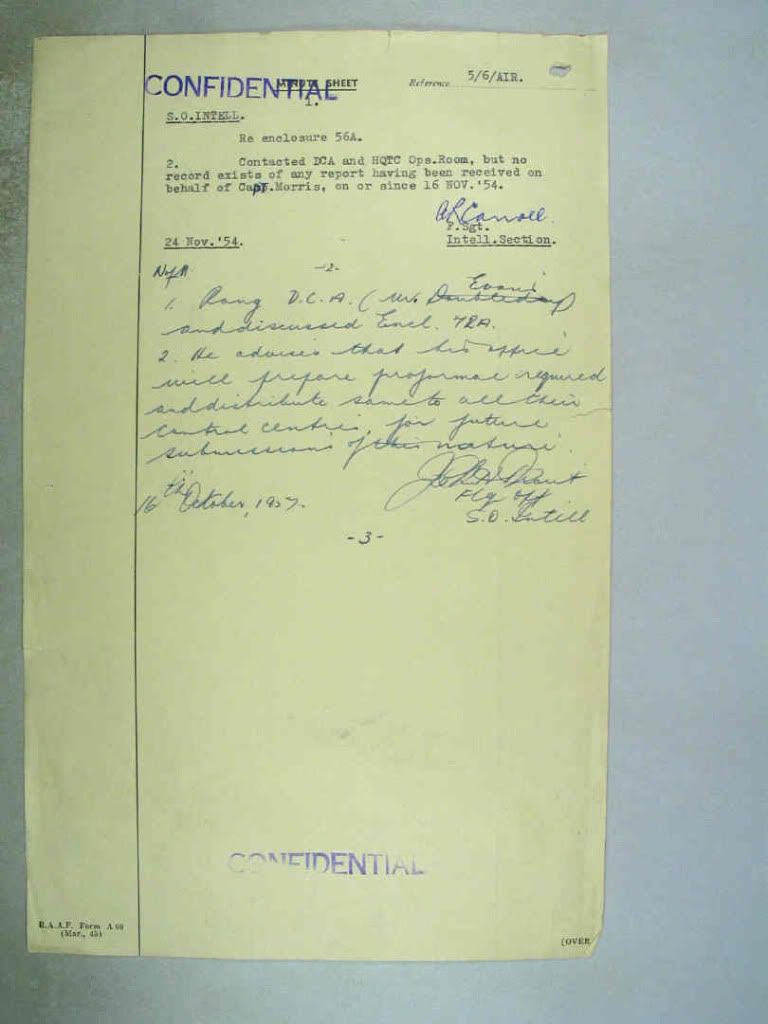 CONFIDENTIAL
MINUTE SHEET
Reference 5/6/AIR.
1.
S.O.INTELL.
Re enclosure 56A.
2. Contacted DCA and HQTC Ops.Room, but no
record exists of any report having been received on
behalf of Capt.Morris, on or since 16 NOV.'54.
F.Sgt.
24 Nov.'54. Intell.Section.
-2-
Evans
1. Rang D.C.A. (Mr. Doubleday)
and discussed Encl. 72A.
2. He advises that his office
will prepare proformae required
and distribute same to all their
control centres, for future
submissions of this nature.
Flg Off
16th October, 1957. S.O. Intell
-3-
CONFIDENTIAL
R.A.A.F. Form A 60
(Mar., 45)
(OVER